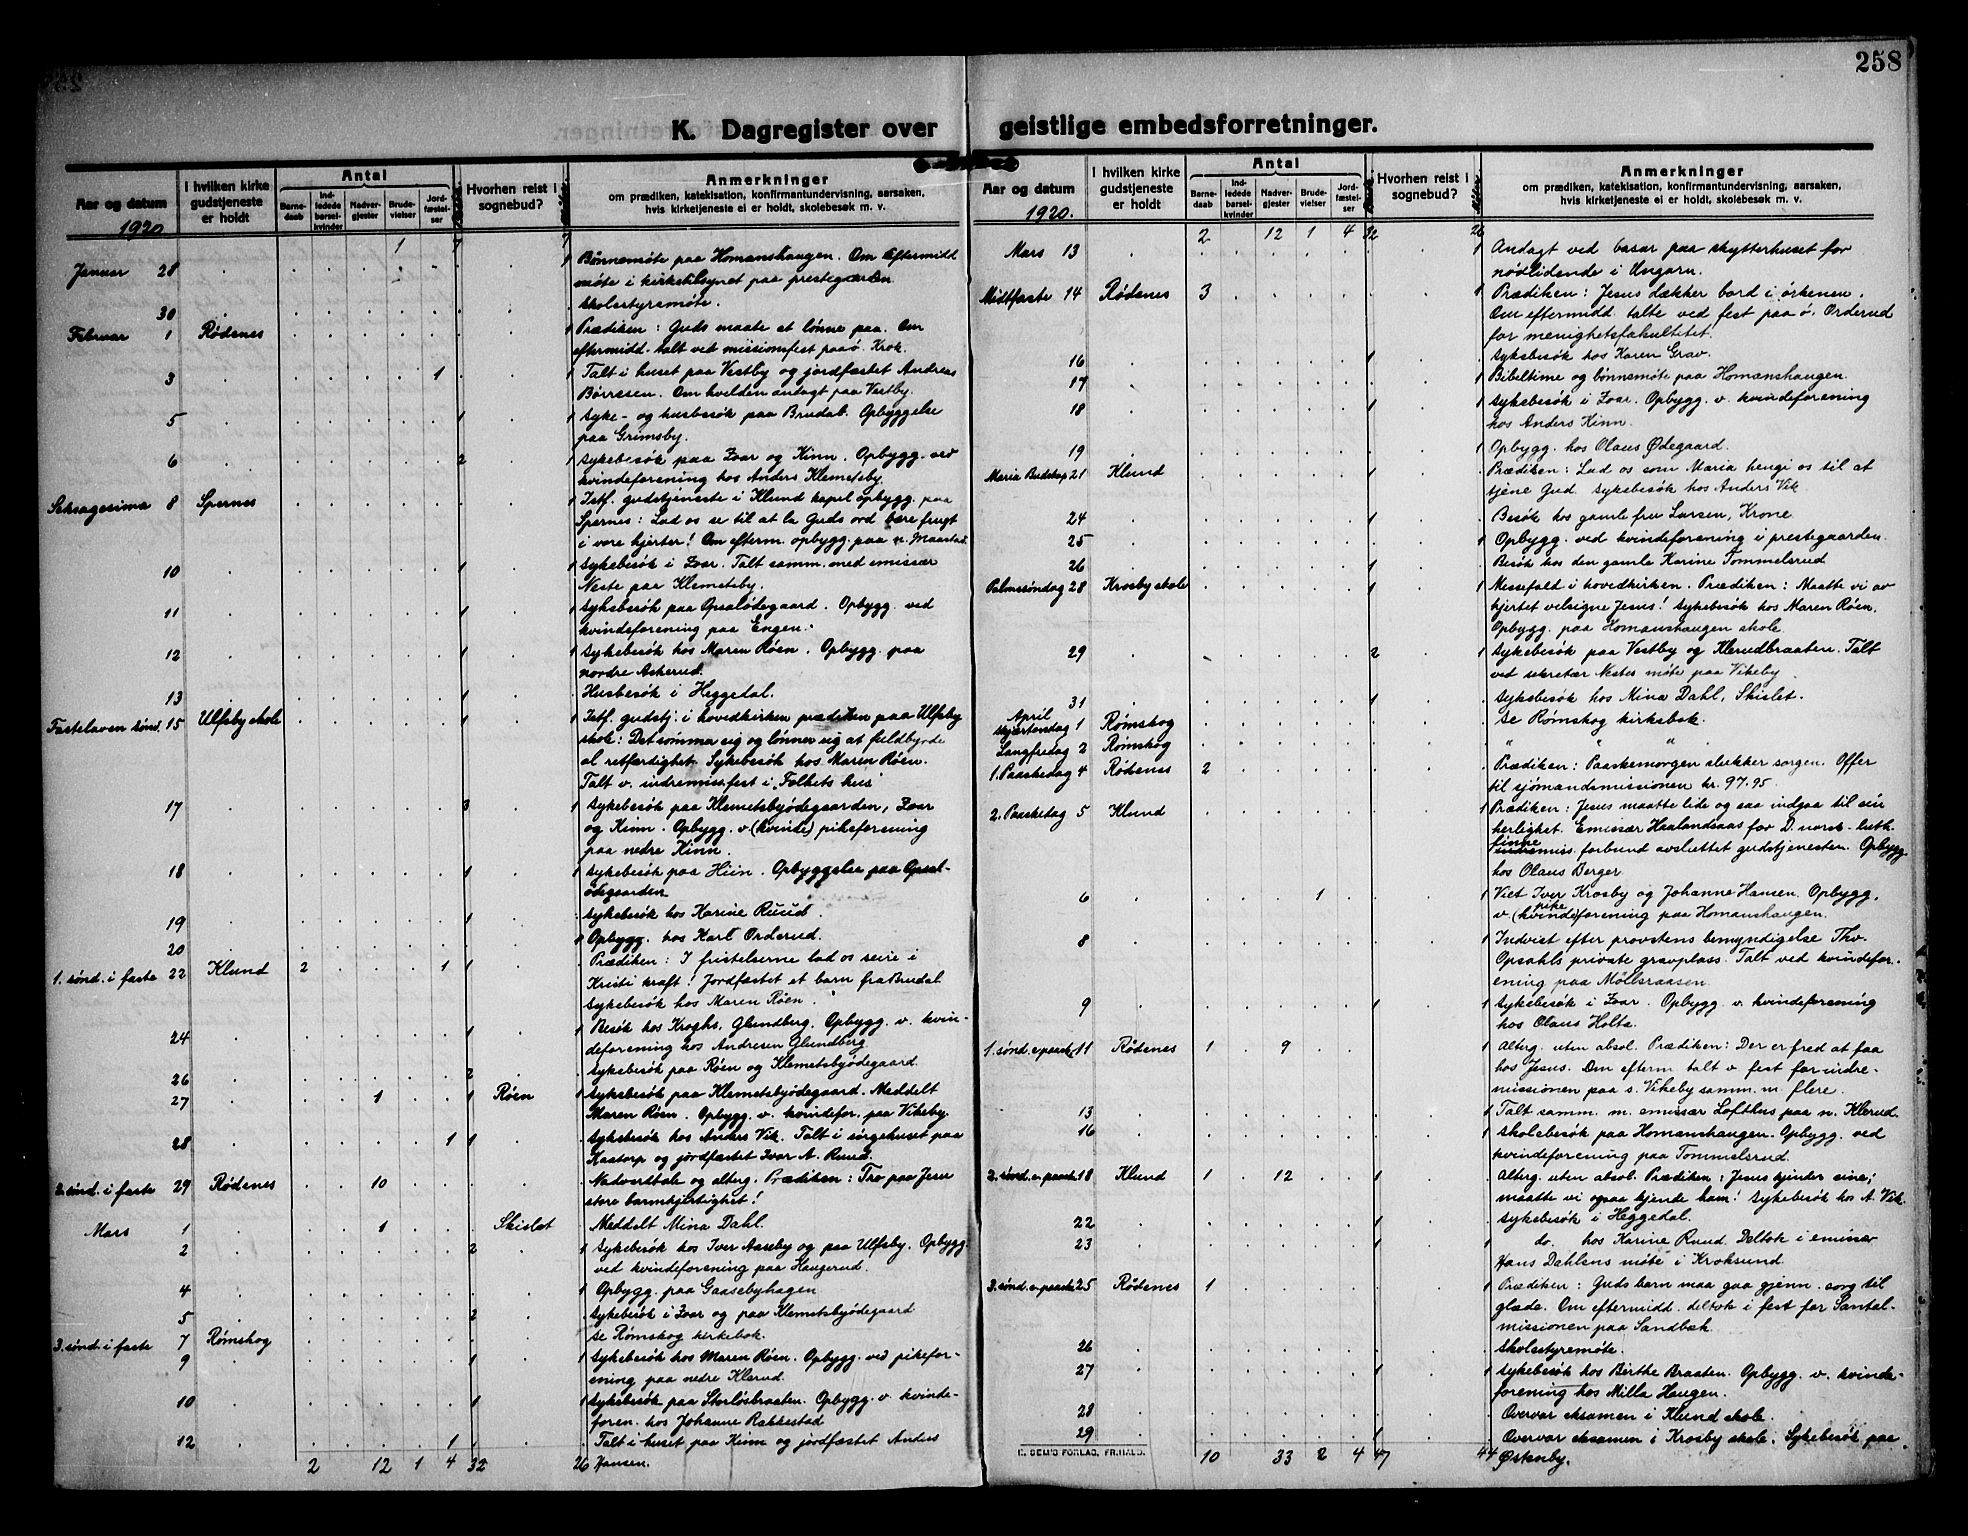 258
K. Dagregister over geistlige embedsforretninger.
Aar og datum
1920
I hvilken kirke gudstjeneste er holdt
Antal
Barne-daab
Ind-ledede barsel-kvinder
Nadver-gjester
Brude-vielser
Jord-fæstel-ser
Hvorhen reist i sognebud?
Anmerkninger
om prædiken, katekisation, konfirmantundervisning, aarsaken,
hvis kirketjeneste ei er holdt, skolebesøk m. v.
1
Januar 28 1 Bønnemøte paa Homanshaugen. Om Eftermidd
møte i kirketilsynet paa prestegaarden
30 Skolestyremøte.
Februar 1 Rødenes 1 Prædiken: Guds maate at lønne paa. Om
eftermidd. talt ved missionsfest paa ø. Krok.
3 1 1 Talt i huset paa Vestby og jordfæstet Andreas
Børresen. Om kvelden andagt paa Vestby.
5 1 1 Syke- og husbesøk paa Brudal. Opbyggelse
paa Grimsby.
6 2 1 Sykebesøk paa Zoar og Kinn. Opbygg. ved
kvindeforening hos Anders Klemetsby.
Seksagesima 8 Spernes 1 Istf. gudstjeneste i Klund kapel opbygg. paa
Spernes: Lad os se til at la Guds ord bære frugt
i vore hjerter! Om efterm. opbygg. paa n. Maarstad.
10 1 1 Sykebesøk i Zoar. Talt samm. med emissær
Neste paa Klemetsby.
11 1 1 Sykebesøk paa Opsalødegaard. Opbygg. ved
kvindeforening paa Engen.
12 1 1 Sykebesøk hos Maren Røen. Opbygg. paa
nordre Askerud.
13 1 Husbesøk i Heggedal.
Fastelaven sønd. 15 Ulfsby skole 1 1 Istf. gudstj. i hovedkirken prædiken paa Ulfsby
skole: Det sømmer sig og lønner sig at fuldbyrde
al retfærdighet. Sykebesøk hos Maren Røen.
Talt v. indremissfest i "Folkets hus"
17 3 1 Sykebesøk paa Klemetsbyødegaarden, Zoar
og Kinn. Opbygg. v. (kvinde) pikeforening
paa nedre Kinn.
18 1 1 Sykebesøk paa Hiin. Opbyggelse paa Opsal-
ødegaarden
19 1 Sykebesøk hos Karine Ruud.
20 Opbygg. hos Karl Orderud.
1. sønd. i faste 22 Klund 2 1 1 Prædiken: I fristelserne lad os seire i
Kristi kraft! Jordfæstet et barn fra Brudal
Sykebesøk hos Maren Røen.
24 1 1 Besøk hos Kroghs, Glundberg. Opbygg. v. kvin-
deforening hos Andresen Glundberg
26 2 Sykebesøk paa Røen og Klemetsbyødegaard.
27 1 1 Røen 1 Sykebesøk paa Klemetsbyødegaard. Meddelt
Maren Røen. Opbygg. v. kvindefor. paa Vikeby.
28 1 1 Sykebesøk hos Anders Vik. Talt i sørgehuset paa
Kaatorp og jordfæstet Ivar A. Ruud.
2. sønd. i faste 29 Rødenes 10 Nadverdtale og alterg. Prædiken: Tro paa Jesu
store barmhjertighet!
Mars 1 1 Skislet Meddelt Mina Dahl.
2 2 1 Sykebesøk hos Iver Aaseby og paa Ulfsby. Opbygg.
ved kvindeforening paa Haugerud.
4 1 Opbygg. paa Gaasebyhagen
5 2 Sykebesøk i Zoar og paa Klemetsbyødegaard
3. sønd. i faste 7 Rømskog Se Rømskog kirkebok.
9 1 1 Sykebesøk hos Maren Røen. Opbygg. ved pikefor-
ening paa nedre Klerud.
10 1 1 Sykebesøk paa Storløsbraaten. Opbygg. v. kvinde-
foren. hos Johanne Rakkestad
12 1 1 Talt i huset paa Kinn og jordfæstet Anders
2 12 1 4 32 26 Hansen.
Aar og datum
1920.
I hvilken kirke gudstjeneste er holdt
Antal
Barne-daab
Ind-ledede barsel-kvinder
Nadver-gjester
Brude-vielser
Jord-fæstel-ser
Hvorhen reist i sognebud?
Anmerkninger
om prædiken, katekisation, konfirmantundervisning, aarsaken,
hvis kirketjeneste ei er holdt, skolebesøk m. v.
2 12 1 4 32 26
Mars 13 1 Andagt ved basar paa skytterhuset for
nødlidende i Ungarn.
Midtfaste 14 Rødenes 3 1 Prædiken: Jesus dækker bord i ørkenen.
Om eftermidd. talte ved fest paa ø. Orderud
for menighetsfakultetet.
16 1 Sykebesøk hos Karen Grav.
17 1 Bibeltime og bønnemøte paa Homanshaugen.
18 1 1 Sykebesøk i Zoar. Opbygg. v. kvindeforening
hos Anders Kinn.
19 1 Opbygg. hos Olaus Ødegaard.
Maria Budskap 21 Klund 1 Prædiken: Lad os som Maria hengi os til at
tjene Gud. Sykebesøk hos Anders Vik.
24 1 Besøk hos gamle fru Larsen, Krone
25 1 Opbygg. ved kvindeforening i prestegaarden.
26 1 Besøk hos den gamle Karine Tommelsrud
Palmesøndag 28 Krosby skole 1 1 Messefald i hovedkirken. Prædiken: Maatte vi av
hjertet velsigne Jesus! Sykebesøk hos Maren Røen.
Opbygg. paa Homanshaugen skole.
29 2 1 Sykebesøk paa Vestby og Klerudbraaten. Talt
ved sekretær Nestes møte paa Vikeby.
31 1 Sykebesøk hos Mina Dahl, Skislet.
April
Skjærtorsdag 1 Rømskog Se Rømskog kirkebok.
Langfredag 2 Rømskog " " "
1. Paaskedag 4 Rødenes 2 Prædiken: Paaskemorgen slukker sorgen. Offer
til sjømandsmissionen kr. 97.95
2. Paaskedag 5 Klund 1 Prædiken: Jesus maatte lide og saa indgaa til sin
herlighet. Emissær Haalandsaas for D. norsk-luth.
finnemiss. forbund avsluttet gudstjenesten. Opbygg
hos Olaus Berger
6 1 1 Viet Iver Krosby og Johanne Hansen. Opbygg.
v. (kvinde) pike forening paa Homanshaugen.
8 1 Indviet efter provstens bemyndigelse Thv.
Opsahls private gravplass. Talt ved kvindefor-
ening paa Möllsraasen.
9 1 1 Sykebesøk i Zoar. Opbygg. v. kvindeforening
hos Olaus Holta.
1. sønd. e. paaske 11 Rødenes 1 9 1 Alterg. uten absol. Prædiken: Der er fred at faa
hos Jesus. Om efterm. talt v. fest for indre-
missionen paa s. Vikeby samm. m. flere.
13 1 Talt samm. m. emissær Lofthus paa n. Klerud.
16 1 Skolebesøk paa Homanshaugen. Opbygg. ved
kvindeforening paa Tommelsrud.
2. sønd. e. paaske 18 Klund 1 12 1 Alterg. uten absol. Prædiken: Jesus kjender sine;
maatte vi ogsaa kjende ham! Sykebesøk hos A. Vik.
22 1 Sykebesøk i Heggedal.
23 1 do. hos Karine Ruud. Deltok i emissær
Hans Dahlens møte i Kroksund.
3. sønd. e. paaske 25 Rødenes 1 1 Prædiken: Guds barn maa gaa gjenn. sorg til
glæde. Om eftermidd. deltok i fest for Santal-
missionen paa Sandbæk.
26 Skolestyremøte.
27 1 1 Sykebesøk hos Birthe Braaten. Opbygg. v. kvinde-
forening hos Milla Haugen.
28 Overvar eksamen i Klund skole.
29 1 Overvar eksamen i Krosby skole. Sykebesøk paa
SEM'S FORLAG, FR.HALD.
10 33 2 4 47 44 Østenby.